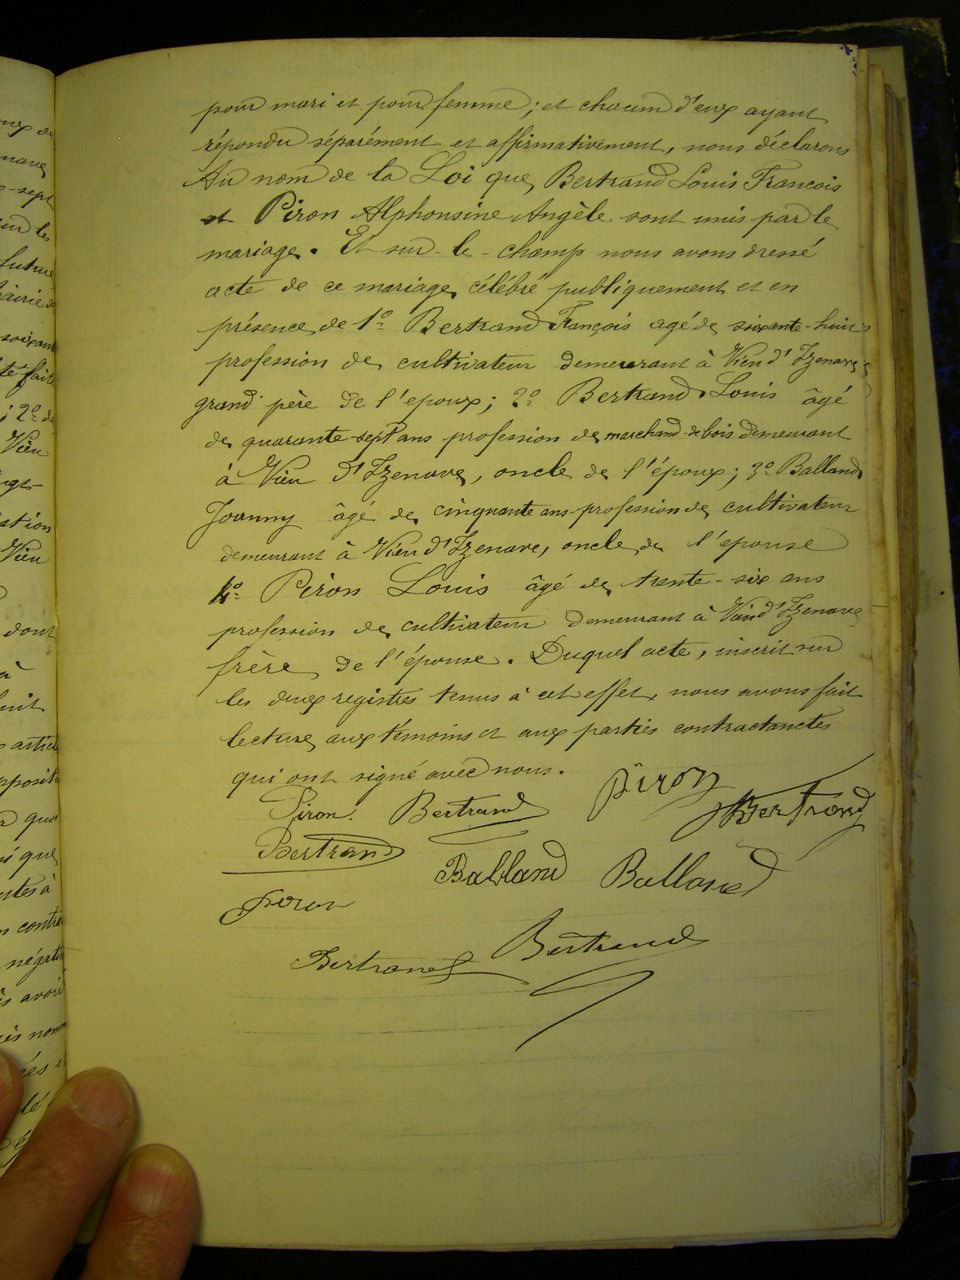 pour mari et pour femme; et chacun d'eux ayant
répondu séparément et affirmativement, nous déclarons
Au nom de la Loi que Bertrand Louis Francois
et Piron Alphonsine Angèle sont unis par le
mariage. Et sur-le-champ nous avons dressé
acte de ce mariage célébré publiquement et en
présence de 1º Bertrand François agé de soixante-huit
profession de cultivateur demeurant à Vieu d'Izenave
grand père de l'epoux; 2º Bertrand Louis âgé
de quarante-sept ans profession de marchand de bois demeurant
à Vieu d'Izenave, oncle de l'époux; 3º Balland
Joanny âgé de cinquante ans profession de cultivateur
demeurant à Vieu d'Izenave, oncle de l'epouse
4º Piron Louis âgé de trente-six ans
profession de cultivateur demeurant à Vieu d'Izenave
frère de l'épouse. Duquel acte, inscrit sur
les deux registres tenus à cet effet, nous avons fait
lecture aux témoins et aux parties contractantes
qui ont signé avec nous.
Piron Bertrand Piron Bertrand
Bertrand Balland Balland
Piron
Bertrand Bertrand